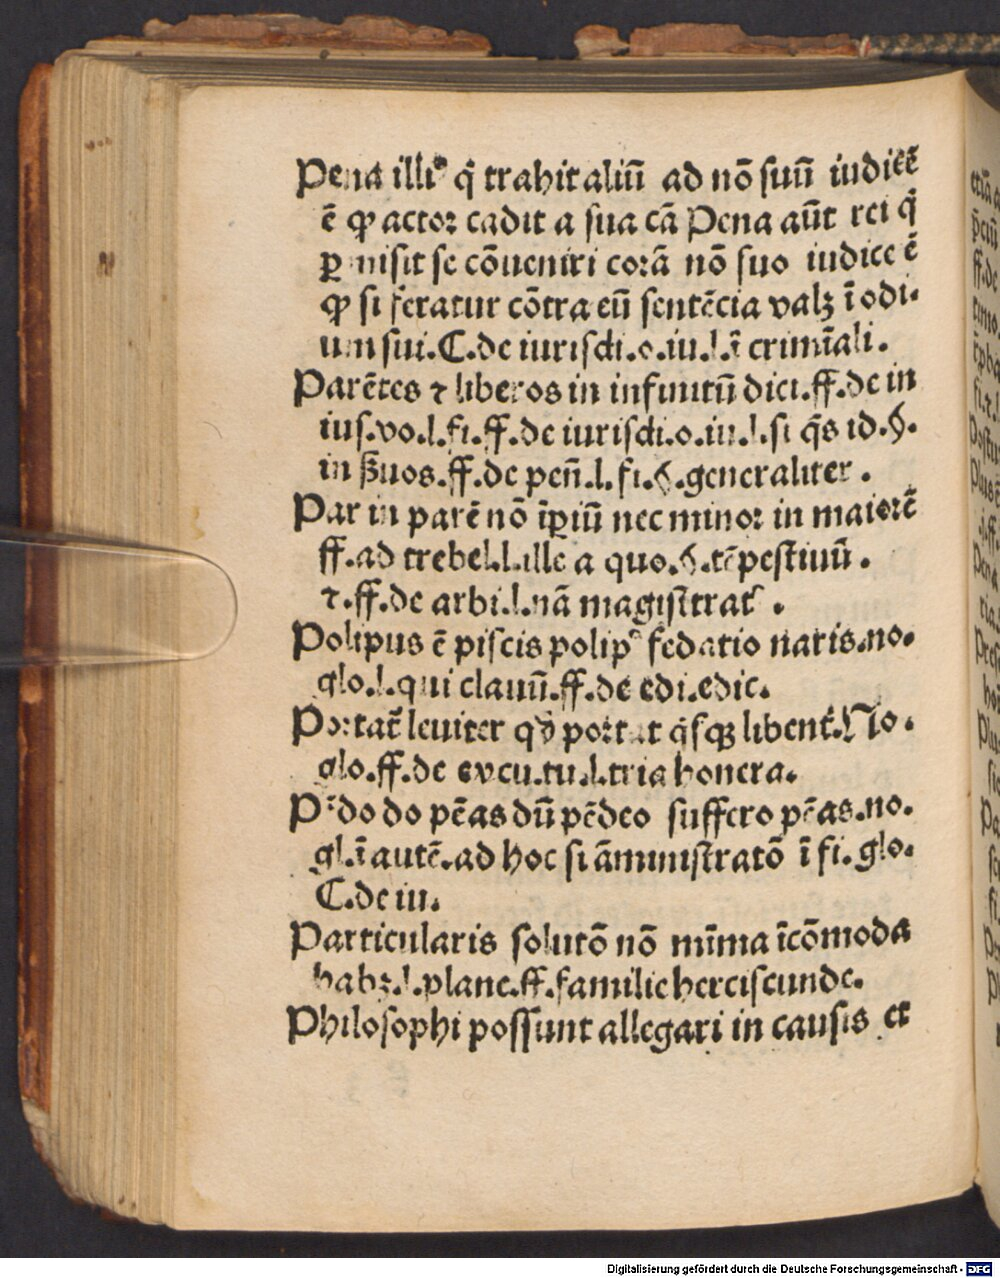 Pena illiꝰ q̄ trahit aliū ad nō suū iudicē
ē ꝙ actor cadit a sua cā Pena aūt rei q̄
ꝑmisit se cōueniri corā nō suo iudice ē
ꝙ si feratur cōtra eū sentēcia valꝫ ī odi⸗
um sui.C.de iurisdi.o.iu.l.ī crimīali.
Parētes ⁊ liberos in infinitū dici.ff.de in
ius.vo.l.fi.ff.de iurisdi.o.iu.l.si q̄s id.§.
in ẜuos.ff.de peñ.l.fi.§.generaliter.
Par in parē nō īꝑiū nec minor in maiorē
ff.ad trebel.l.ille a quo.§.tēpestiuū.
⁊.ff.de arbi.l.nā magistrat᷒.
Polipus ē piscis polipꝰ fedatio naris.no.
glo.l.qui clauū.ff.de edi.edic.
Portat̄ leuiter qď portat q̄sqꝫ libent̄.No.
glo.ff.de excu.tu.l.tria honera.
do do pēas dū pēdeo suffero pēas.no.
gl.ī autē.ad hoc si āministratō ī fi.glo.
C.de iu.
Particularis solutō nō mīma īcōmoda
habꝫ.l.plane.ff.familie herciscunde.
Philosophi possunt allegari in causis et
Digitalisierung gefördert durch die Deutsche Forschungsgemeinschaft - DFG